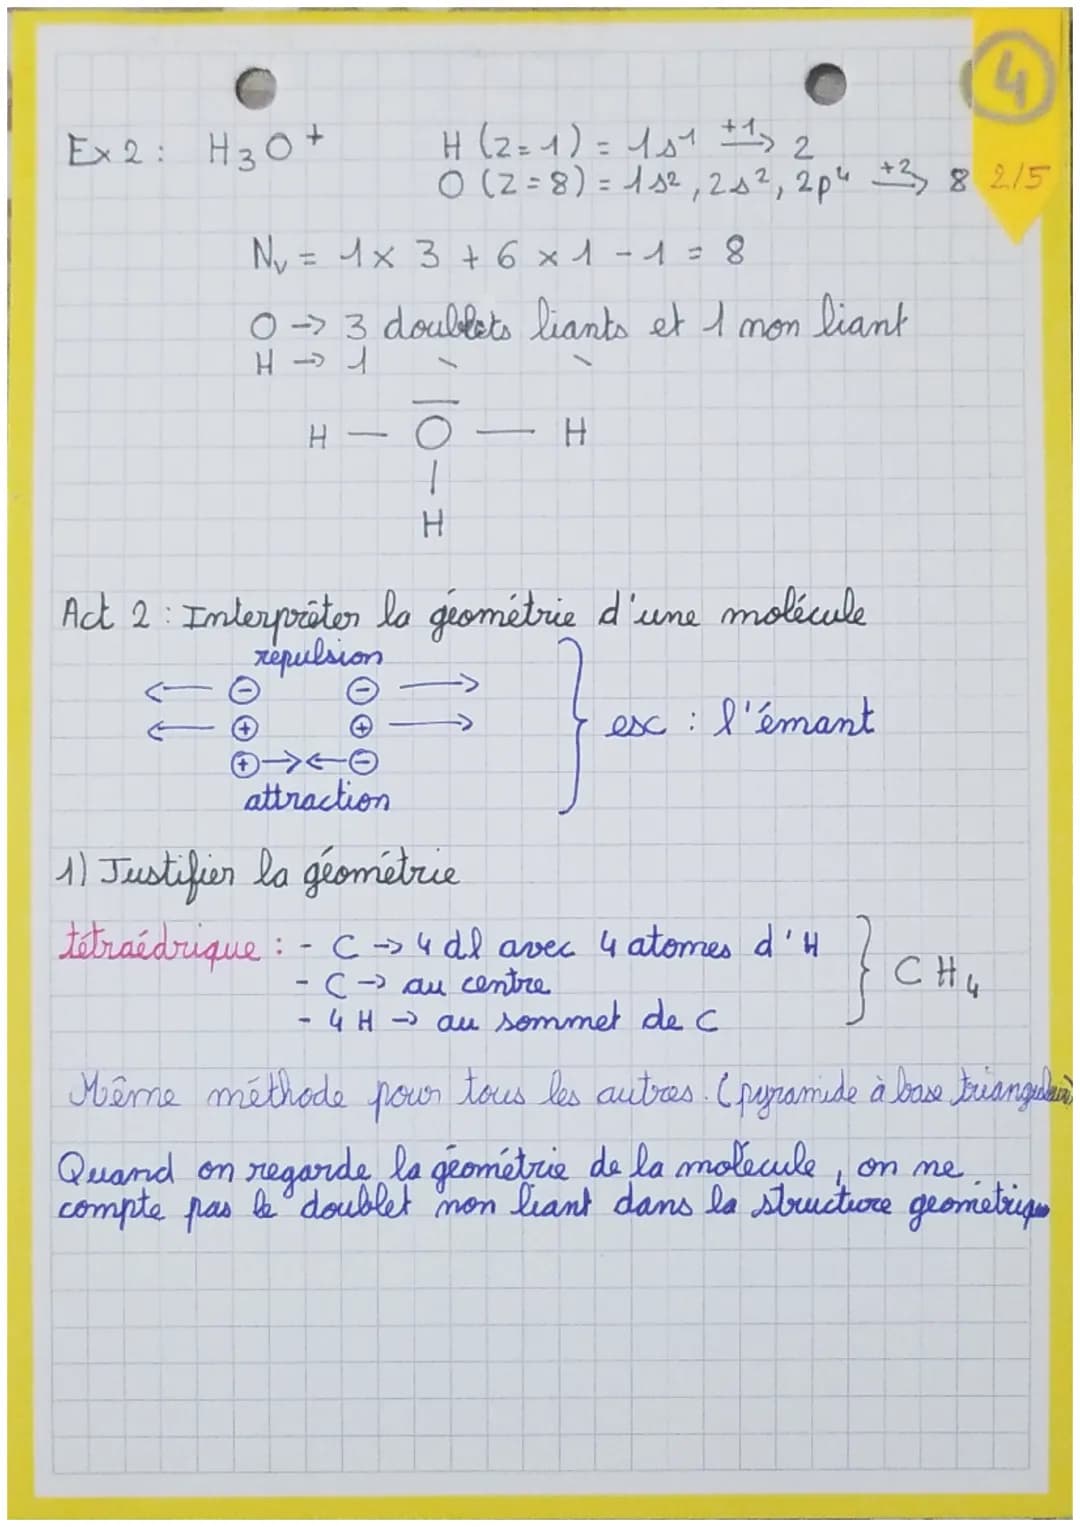 4
Ex 2 : H3O+
H (Z=1) = 1s1 +1→ 2
O (Z=8) = 1s2, 2s2, 2p4 +2→ 8
2/5
Nv = 1 x 3 + 6 x 1 - 1 = 8
O → 3 doublets liants et 1 non liant
H → 1 \ \
H — O — H
|
H
Act 2 : Interprêter la géométrie d'une molécule
répulsion
← ⊖ ⊖ →
← ⊕ ⊕ →
⊕→←⊖
attraction
esc : l'émant
1) Justifier la géométrie
tétraédrique : - C → 4 dl avec 4 atomes d'H
- C → au centre
- 4 H → au sommet de C
CH4
Même méthode pour tous les autres. (pyramide à base triangulaire)
Quand on regarde la géométrie de la molécule, on ne
compte pas le doublet non liant dans la structure geométrique